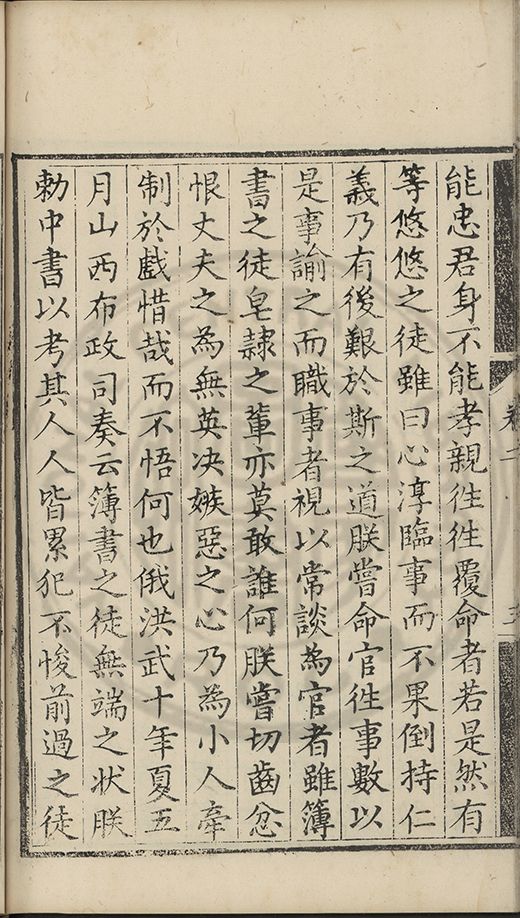 能忠君身不能孝親徃徃覆命者若是然有
等悠悠之徒雖曰心淳臨事而不果倒持仁
義乃有後艱於斯之道朕嘗命官徃事數以
是事諭之而職事者視以常談為官者雖簿
書之徒皂隷之輩亦莫敢誰何朕嘗切齒忿
恨丈夫之為無英决嫉惡之心乃為小人牽
制於戲惜哉而不悟何也俄洪武十年夏五
月山西布政司奏云簿書之徒無端之状朕
勅中書以考其人人皆累犯不悛前過之徒